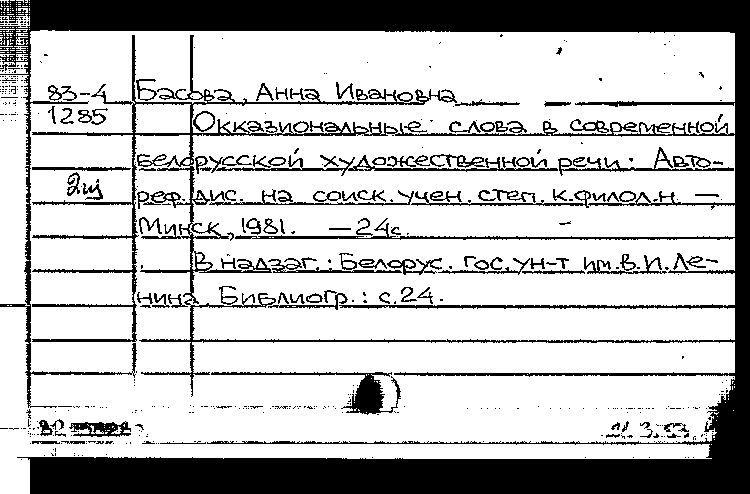 83-4 Басова, Анна Ивановна
1285 Окказиональные слова в современной
белорусской художественной речи: Авто-
реф. дис. на соиск. учен. степ. к.филол.н. —
Минск, 1981. — 24с.
В надзаг.: Белорус. гос. ун-т им. В.И.Ле-
нина. Библиогр.: с.24.